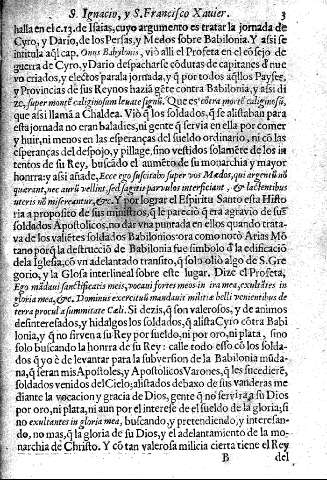 S. Ignacio, y S. Francisco Xauier. 3
halla en el c.13. de Isaias, cuyo argumento es tratar la jornada de
Cyro, y Dario, de los Persas, y Medos sobre Babylonia. Y assi se
intitula aql cap. Onus Babylonis, viò alli el Profeta en el cõsejo de
guerra de Cyro, y Dario despacharse cõdutas de capitanes d' nue
vo criados, y electos para la jornada, y q̃ por todos aq̃llos Payses,
y Prouincias de sus Reynos haziã gẽte contra Babylonia, y assi di
ze, super montẽ caliginosum leuate signũ. Que es cõtra mõtẽ caliginosũ,
que assi llamà a Chaldea. Viò q̃ los soldados, q̃ se alistaban para
esta jornada no eran baladies, ni gente q̃ seruia en ella por comer
y huir, ni menos en las esperanças del sueldo ordinario, ni cõ las
esperanças del despojo, y pillage, sino vestidos solamẽte de los in
tentos de su Rey, buscãdo el aumẽto de su monarchia y mayor
honrra: y assi añade, Ecce ego suscitabo super vos Medos, qui argentũ nõ
querant, nec aurũ velint, sed sagitis parvulos interficiant, & lactentibus
uteris nõ misereantur, &c. Y por lograr el Espiritu Santo esta Histo
ria a proposito de sus ministros, q̃ le pareciò q̃ era agravio de sus
soldados Apostolicos, no dar vna puntada en ellos quando trata-
va de los valiẽtes soldados Babilonios: ora como notò Arias Mõ
tano porq̃ la destrucciõ de Babilonia fue simbolo d' la edificaciõ
de la Iglesia, cõ vn adelantado transito, q̃ solo oliò algo de S. Gre
gorio, y la Glosa interlineal sobre este lugar. Dize el Profeta,
Ego mãdaui sanctificatis meis, vocaui fortes meos in ira mea, exultãtes in
gloria mea, &c. Dominus exercituũ mandauit militiæ belli venientibus de
terra procul a summitate Cæli. Si dezis, q̃ son valerosos, y de animos
desinteresados, y hidalgos los soldados, q̃ alista Cyro contra Babi
lonia, y q̃ no sirven a su Rey por sueldo, ni por oro, ni plata, sino
solo buscando la honrra de su Rey: calle todo esso cõ los solda-
dos q̃ yo è de levantar para la subversion de la Babilonia mũda-
na, q̃ seràn mis Apostoles, y Apostolicos Varones, q̃ les sucedierẽ,
soldados venidos del Cielo; alistados debaxo de sus vanderas me
diante la vocacion y gracia de Dios, gente q̃ no servirà a su Dios
por oro, ni plata, ni aun por el interese de el sueldo de la gloria; si
no exultantes in gloria mea, buscando, y pretendiendo, y interesan-
do, no mas, q̃ la gloria de su Dios, y el adelantamiento de la mo-
narchia de Christo. Y cõ tan valerosa milicia cierta tiene el Rey
B del